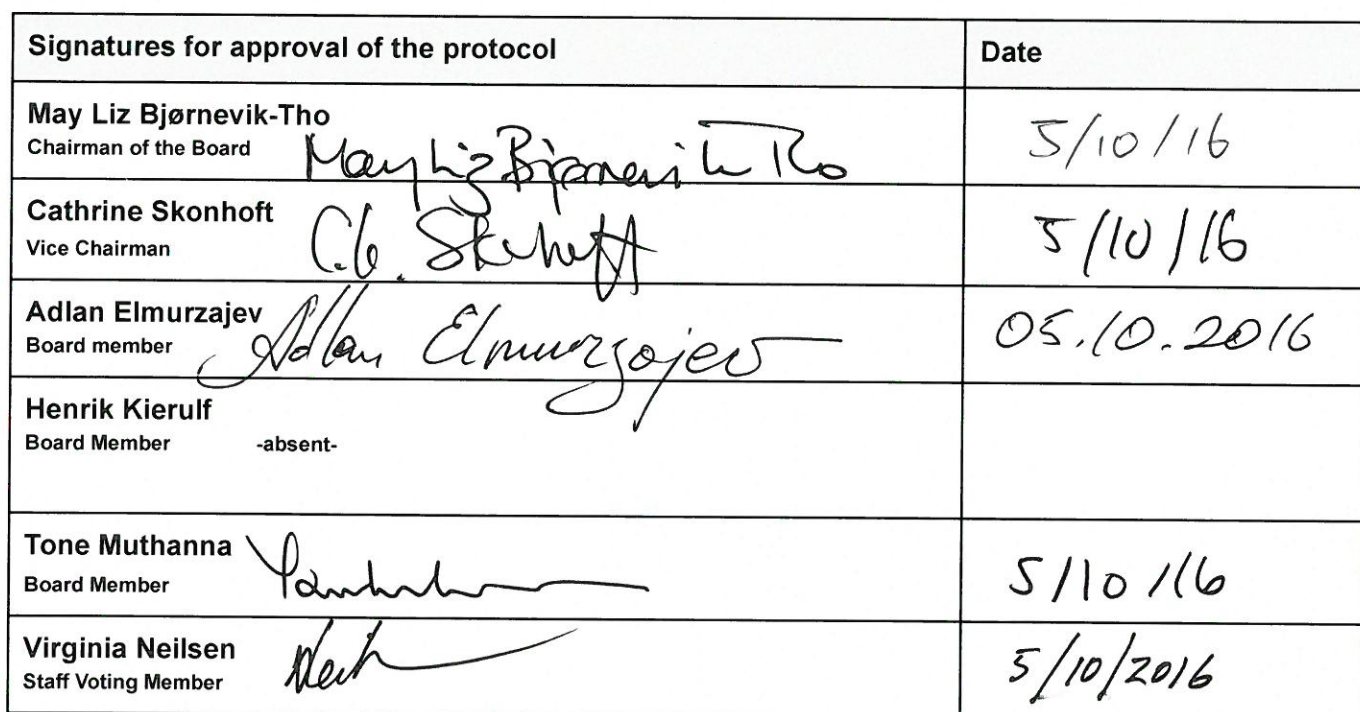 Signatures for approval of the protocol Date
May Liz Bjørnevik-Tho
Chairman of the Board May Liz Bjørnevik Tho 5/10/16
Cathrine Skonhoft
Vice Chairman Skonhoft 5/10/16
Adlan Elmurzajev
Board member Adlan Elmurzajev 05.10.2016
Henrik Kierulf
Board Member -absent-
Tone Muthanna
Board Member 5/10/16
Virginia Neilsen
Staff Voting Member 5/10/2016